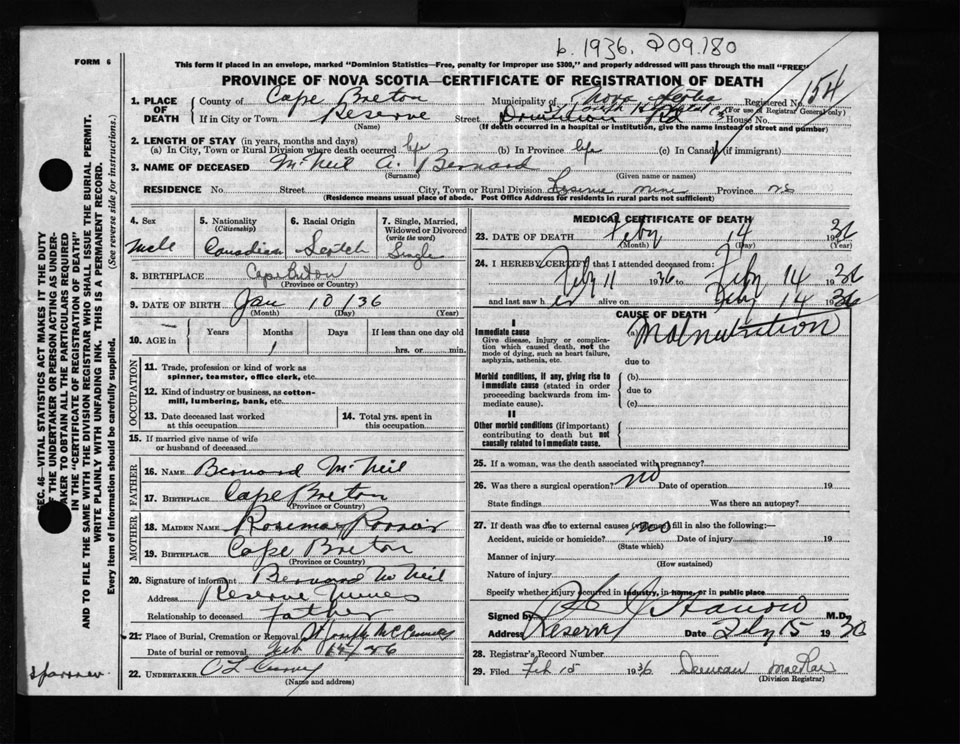 b. 1936. 209.180
FORM 6
This form if placed in an envelope, marked "Dominion Statistics—Free, penalty for improper use $300," and properly addressed will pass through the mail "FREE"
PROVINCE OF NOVA SCOTIA—CERTIFICATE OF REGISTRATION OF DEATH
154
1. PLACE OF DEATH
County of Cape Breton Municipality of Nova Scotia Registered No.
(For use of Registrar General only)
If in City or Town Reserve Street Dominion Rd House No.
(Name) (If death occurred in a hospital or institution, give the name instead of street and number)
2. LENGTH OF STAY (in years, months and days)
(a) In City, Town or Rural Division where death occurred life (b) In Province life (c) In Canada (if immigrant)
3. NAME OF DECEASED McNeil A. Bernard
(Surname) (Given name or names)
RESIDENCE No. Street City, Town or Rural Division Reserve Mines Province NS
(Residence means usual place of abode. Post Office Address for residents in rural parts not sufficient)
4. Sex Male
5. Nationality (Citizenship) Canadian
6. Racial Origin Scotch
7. Single, Married, Widowed or Divorced (write the word) Single
8. BIRTHPLACE Cape Breton
(Province or Country)
9. DATE OF BIRTH Jan 10 / 36
(Month) (Day) (Year)
10. AGE in Years Months Days If less than one day old
1 hrs. or min.
OCCUPATION
11. Trade, profession or kind of work as spinner, teamster, office clerk, etc.
12. Kind of industry or business, as cotton-mill, lumbering, bank, etc.
13. Date deceased last worked at this occupation
14. Total yrs. spent in this occupation
15. If married give name of wife or husband of deceased
FATHER
16. NAME Bernard McNeil
17. BIRTHPLACE Cape Breton
(Province or Country)
MOTHER
18. MAIDEN NAME Rosemary
19. BIRTHPLACE Cape Breton
(Province or Country)
20. Signature of informant Bernard McNeil
Address Reserve Mines
Relationship to deceased Father
21. Place of Burial, Cremation or Removal St Joseph
Date of burial or removal Feb
22. UNDERTAKER C L Curry
(Name and address)
MEDICAL CERTIFICATE OF DEATH
23. DATE OF DEATH Feby 14 1936
(Month) (Day) (Year)
24. I HEREBY CERTIFY that I attended deceased from:
Feby 11 1936 to Feby 14 1936
and last saw h er alive on Feby 14 1936
CAUSE OF DEATH
I
Immediate cause
Give disease, injury or complication which caused death, not the mode of dying, such as heart failure, asphyxia, asthenia, etc.
(a) Malnutrition
due to
Morbid conditions, if any, giving rise to immediate cause (stated in order proceeding backwards from immediate cause).
(b)
due to
(c)
II
Other morbid conditions (if important) contributing to death but not causally related to immediate cause.
25. If a woman, was the death associated with pregnancy?
26. Was there a surgical operation? no Date of operation 19
State findings Was there an autopsy?
27. If death was due to external causes (violence) fill in also the following:—
Accident, suicide or homicide? no Date of injury 19
(State which)
Manner of injury
(How sustained)
Nature of injury
Specify whether injury occurred in industry, in home, or in public place
Signed by M.D.
Address Reserve Date Feby 15 1936
28. Registrar's Record Number
29. Filed Feb 15 1936 Duncan MacRae
(Division Registrar)
SEC. 46—VITAL STATISTICS ACT MAKES IT THE DUTY
OF THE UNDERTAKER OR PERSON ACTING AS UNDERTAKER TO OBTAIN ALL THE PARTICULARS REQUIRED
IN THE "CERTIFICATE OF REGISTRATION OF DEATH"
AND TO FILE THE SAME WITH THE DIVISION REGISTRAR WHO SHALL ISSUE THE BURIAL PERMIT.
WRITE PLAINLY WITH UNFADING INK. THIS IS A PERMANENT RECORD.
Every item of information should be carefully supplied. (See reverse side for instructions.)